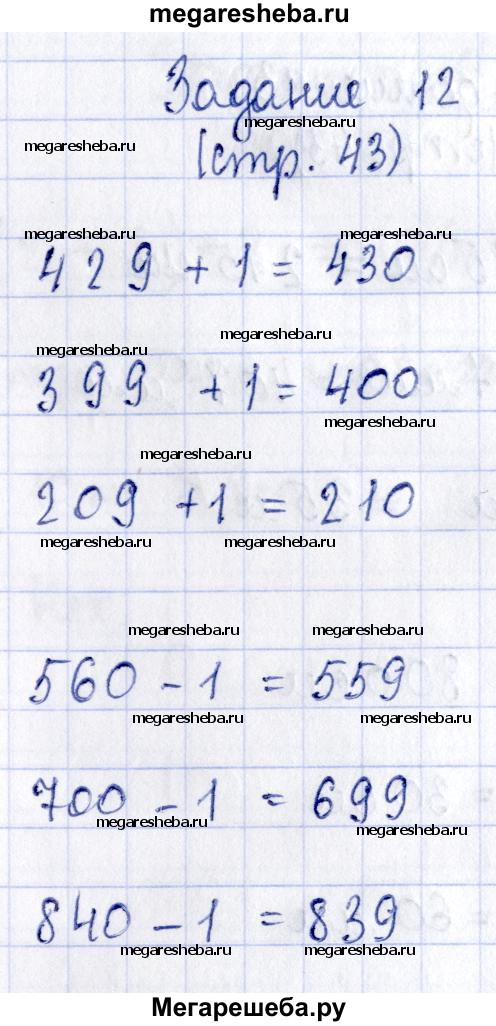 megaresheba.ru
Задание 12
megaresheba.ru
megaresheba.ru
(стр. 43)
megaresheba.ru megaresheba.ru
429 + 1 = 430
megaresheba.ru
megaresheba.ru
399 + 1 = 400
megaresheba.ru
megaresheba.ru
209 + 1 = 210
megaresheba.ru megaresheba.ru
megaresheba.ru megaresheba.ru
560 - 1 = 559
megaresheba.ru megaresheba.ru
700 - 1 = 699
megaresheba.ru
megaresheba.ru
840 - 1 = 839
megaresheba.ru megaresheba.ru
Мегарешеба.ру